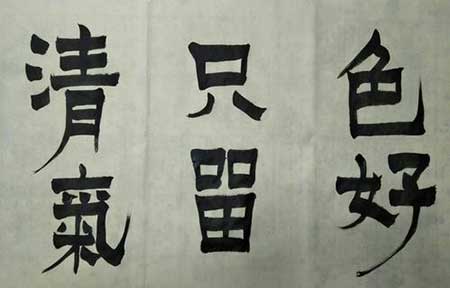 色好
只留
清氣